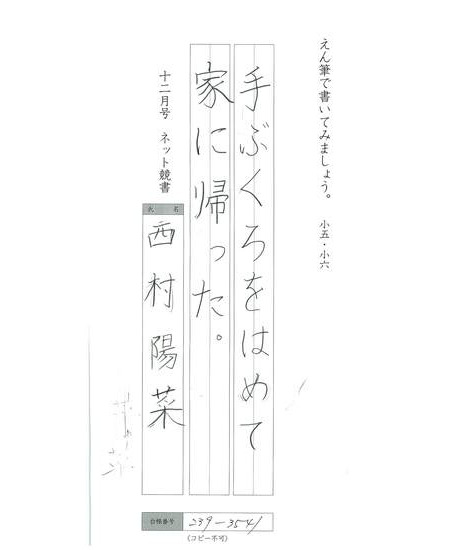 えん筆で書いてみましょう。 小五・小六
手ぶくろをはめて
家に帰った。
十二月号 ネット競書
氏名
西村陽菜
台帳番号 239-3541
(コピー不可)